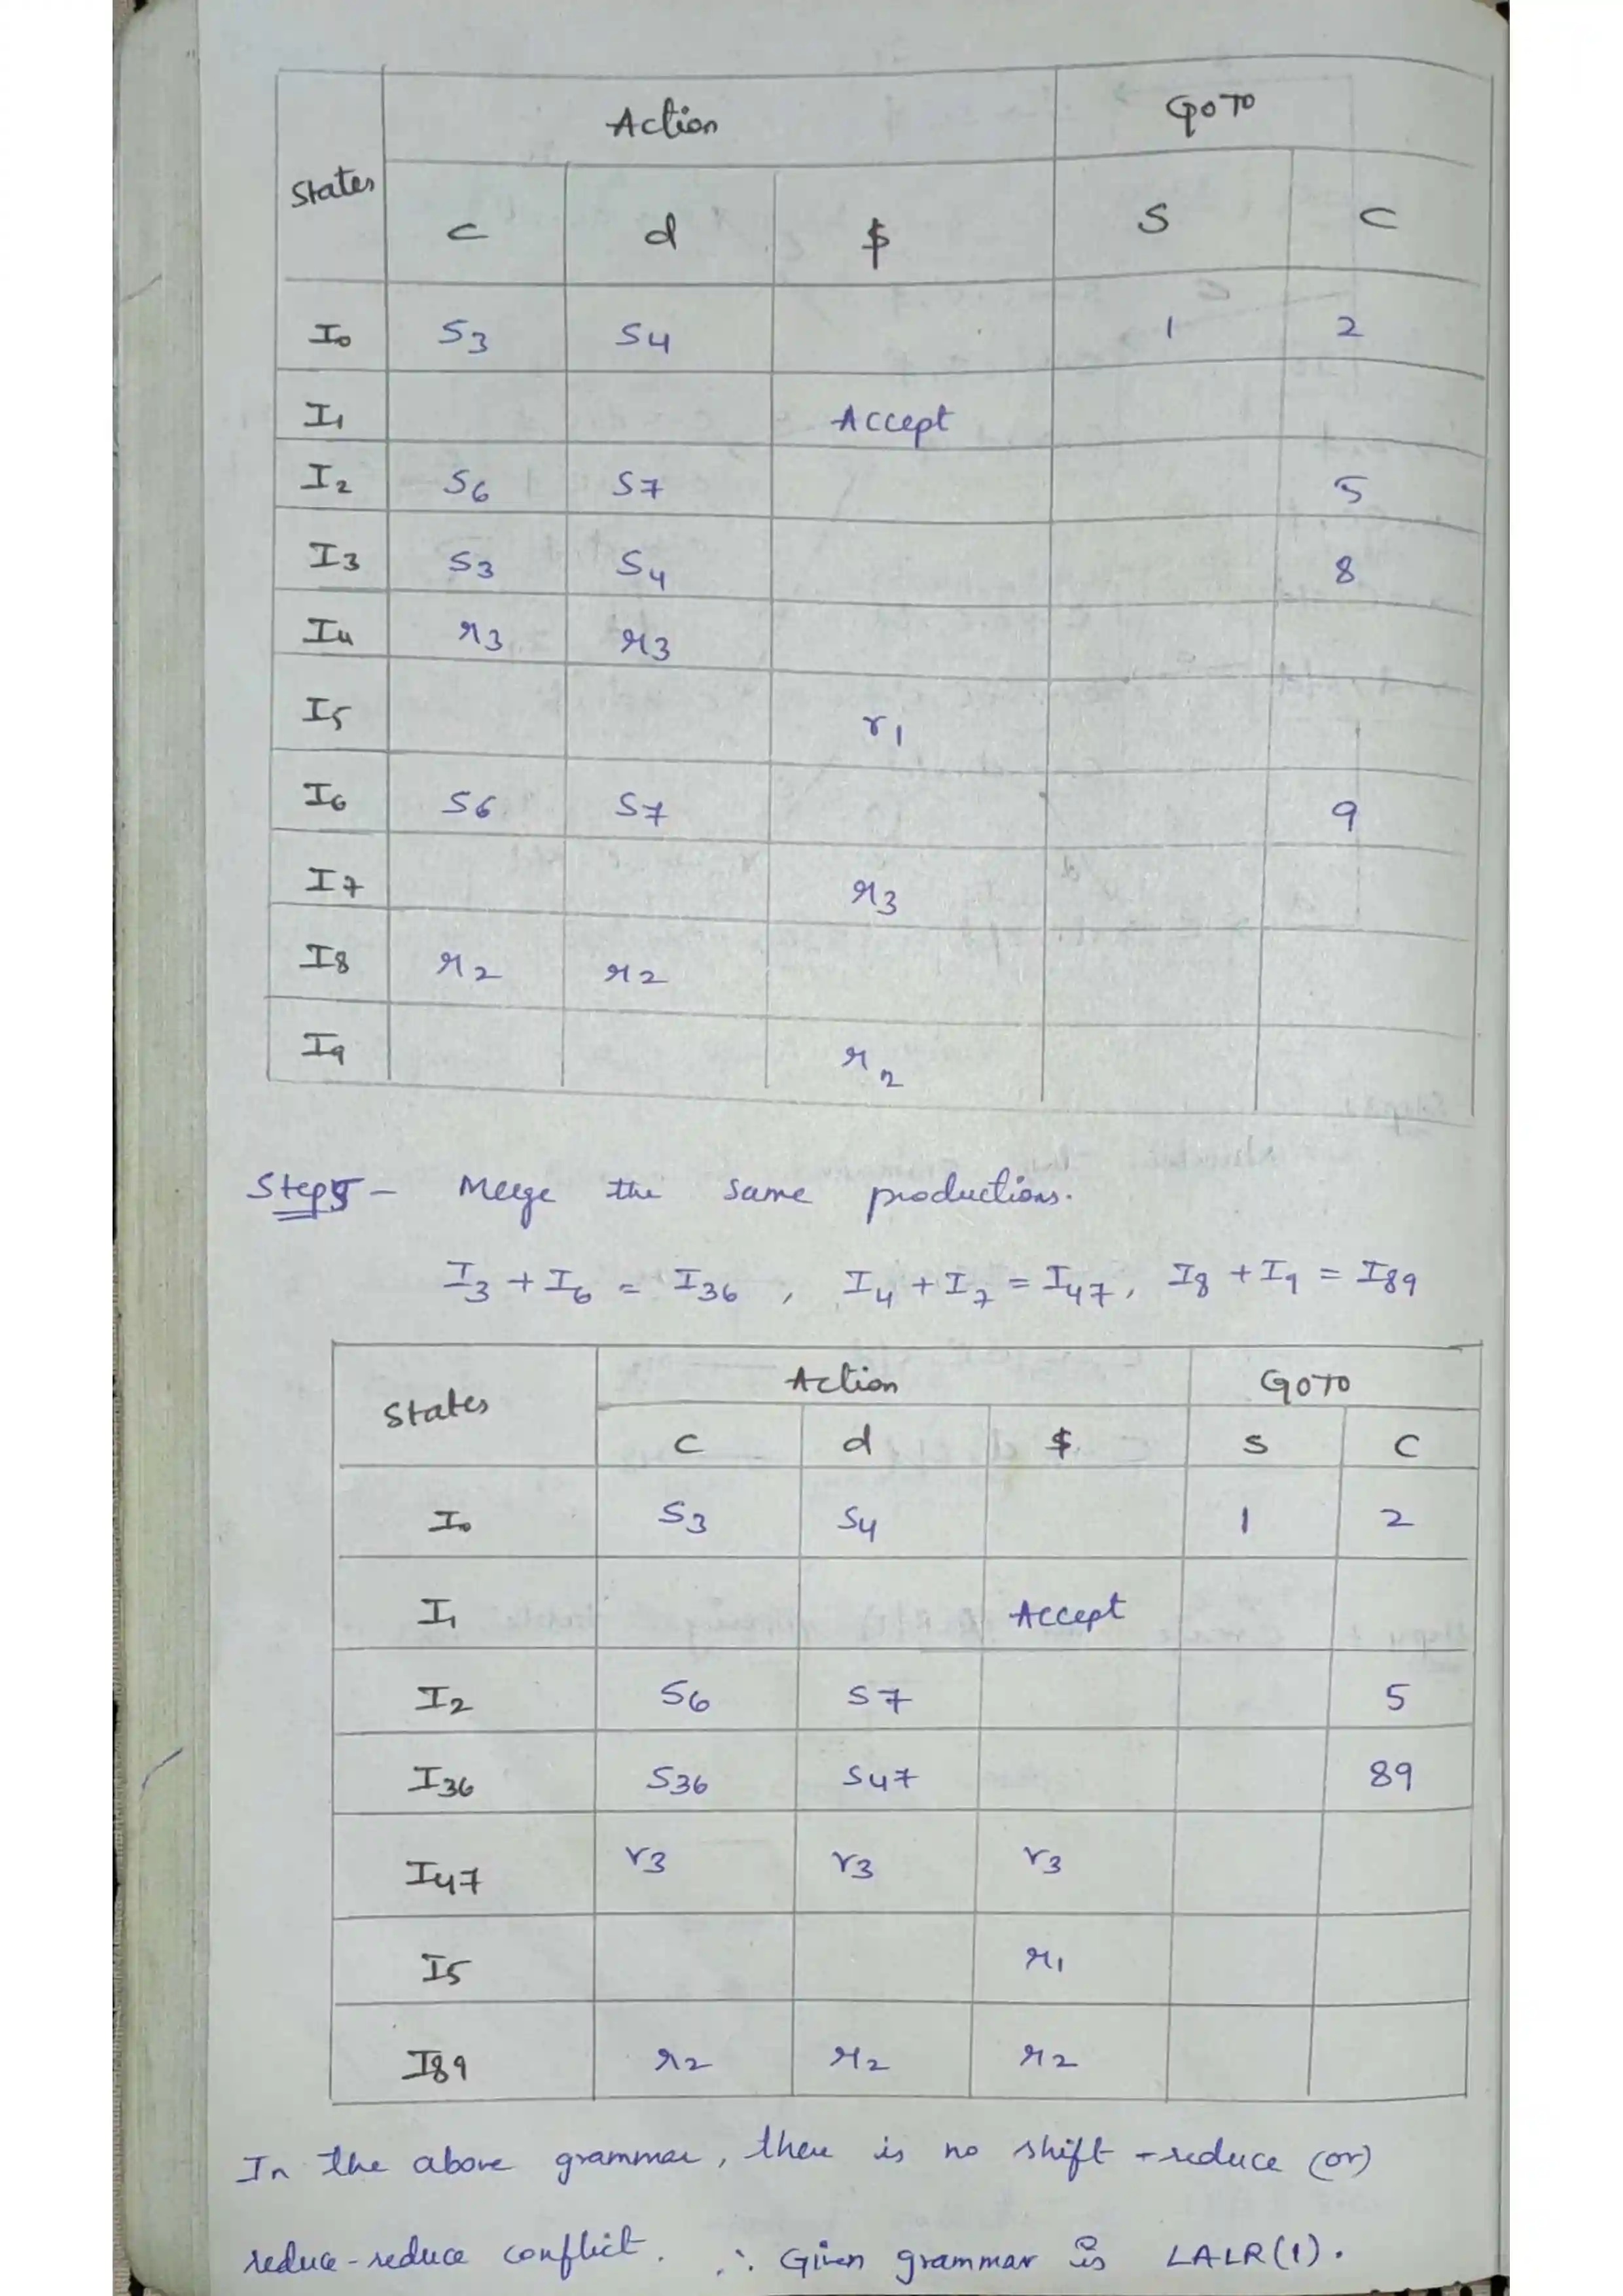 States Action GOTO
c d $ S C
I0 S3 S4 1 2
I1 Accept
I2 S6 S7 5
I3 S3 S4 8
I4 r3 r3
I5 r1
I6 S6 S7 9
I7 r3
I8 r2 r2
I9 r2
Step5 - Merge the same productions.
I3 + I6 = I36 , I4 + I7 = I47, I8 + I9 = I89
States Action GOTO
c d $ S C
I0 S3 S4 1 2
I1 Accept
I2 S6 S7 5
I36 S36 S47 89
I47 r3 r3 r3
I5 r1
I89 r2 r2 r2
In the above grammar, there is no shift-reduce (or)
reduce-reduce conflict. ∴ Given grammar is LALR(1).